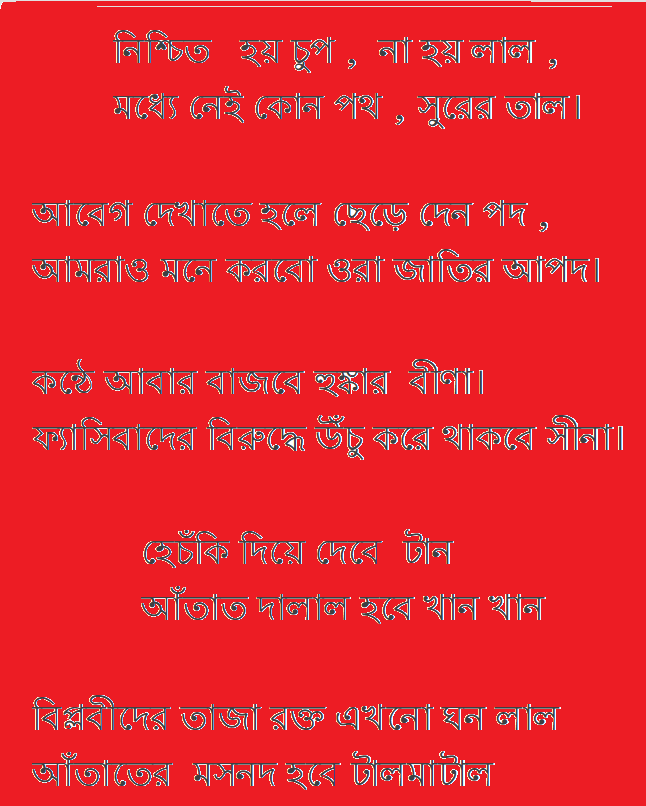 নিশ্চিত হয় চুপ , না হয় লাল ,
মধ্যে নেই কোন পথ , সুরের তাল।
আবেগ দেখাতে হলে ছেড়ে দেন পদ ,
আমরাও মনে করবো ওরা জাতির আপদ।
কন্ঠে আবার বাজবে হুঙ্কার বীণা।
ফ্যাসিবাদের বিরুদ্ধে উঁচু করে থাকবে সীনা।
হেচঁকি দিয়ে দেবে টান
আঁতাত দালাল হবে খান খান
বিপ্লবীদের তাজা রক্ত এখনো ঘন লাল
আঁতাতের মসনদ হবে টালমাটাল